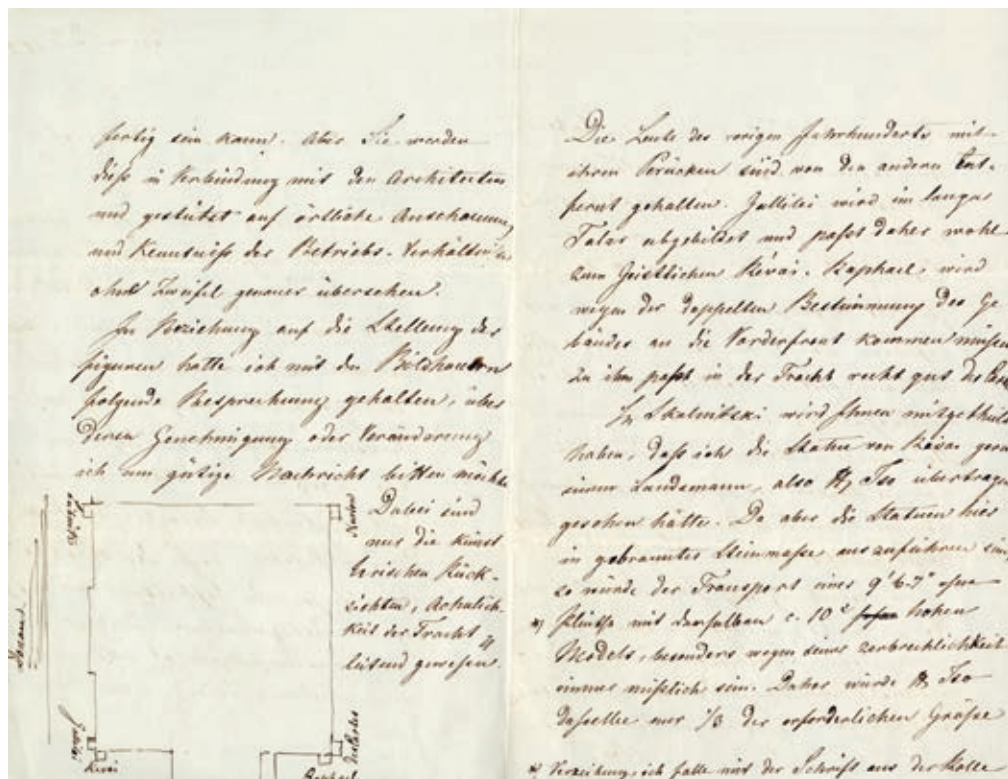 fertig sein kann. Aber Sie werden
dieß in Verbindung mit den Architecten
und gestützt auf örtliche Anschauung
und Kenntniß der Betriebs-Verhältnisse
ohne Zweifel genauer übersehen.
In Beziehung auf die Stellung der
Figuren hatte ich mit den Bildhauern
folgende Besprechung gehalten, über
deren Genehmigung oder Veränderung
ich um gütige Nachricht bitten möchte
Dabei sind
nur die künst
lerischen Rück-
sichten, Aehnlich-
keit der Tracht
leitend gewesen.
Donau
Newton
Galilei
Révai
Raphael
Descartes
Die Leute des vorigen Jahrhunderts mit
ihren Perücken sind von den anderen Ent-
fernt gehalten. Gallilei wird im langen
Talar abgebildet und paßt daher wohl
zum Geistlichen Révai. Raphael, wird
wegen der doppelten Bestimmung des Ge
bäudes an die Vorderfront kommen müßen
zu ihm paßt in der Tracht recht gut
H. Skalnitzki wird Ihnen mitgetheilt
haben, daß ich die Statue von Révai gern
einem Landsmann, also H. Izo übertragen
gesehen hätte. Da aber die Statuen hier
in gebrannter Steinmaße auszuführen sind,
so würde der Transport eines 9' 6-7" ohne
*) Plinthe mit derselben c. 10' hohen
Models, besonders wegen seiner Zerbrechlichkeit
immer mißlich sein. Daher würde H. Izo
dasselbe nur 1/3 der erforderlichen Größe
*) Verzeihung, ich falle mit der Schrift aus der Rolle